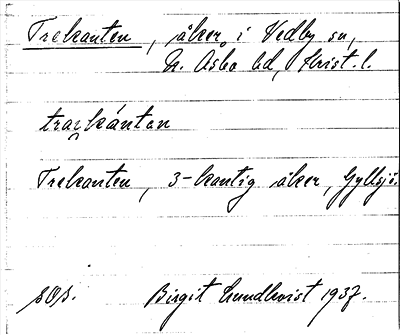 Trekanten, åker i Vedby sn,
N. Åsbo hd, Krist. l.
Trekanten, 3-kantig åker, Gyllsjö.
sos. Birgit Lundkvist 1937.